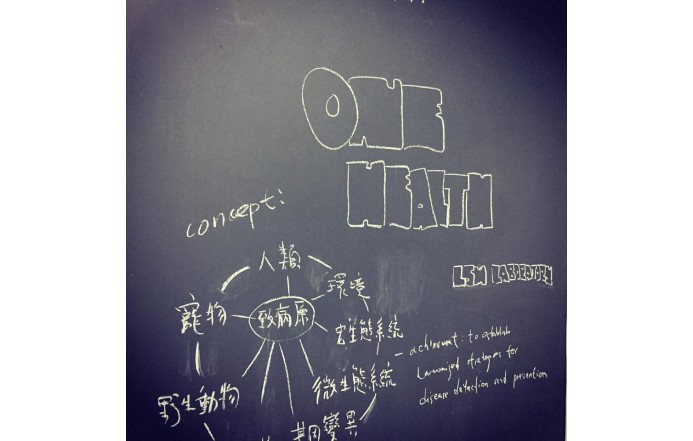 ONE
HEALTH
concept:
人類
環境
LSM LABORATORY
寵物
致病原
宏生態系統
achievement: to establish
strategies for
微生態系統
disease detection and prevention
野生動物
基因變異